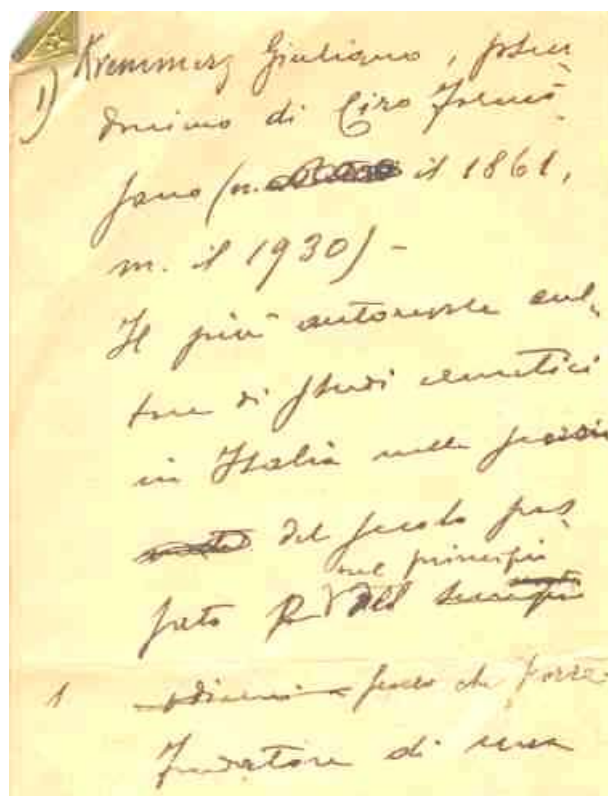 1) Kremmerz Giuliano, pseu
donimo di Ciro Formi
sano (n. il 1861,
m. il 1930) -
Il più autorevole cul-
tore di studi ermetici
in Italia nella
del secolo pas
nel principio
sato
1
Fondatore di una